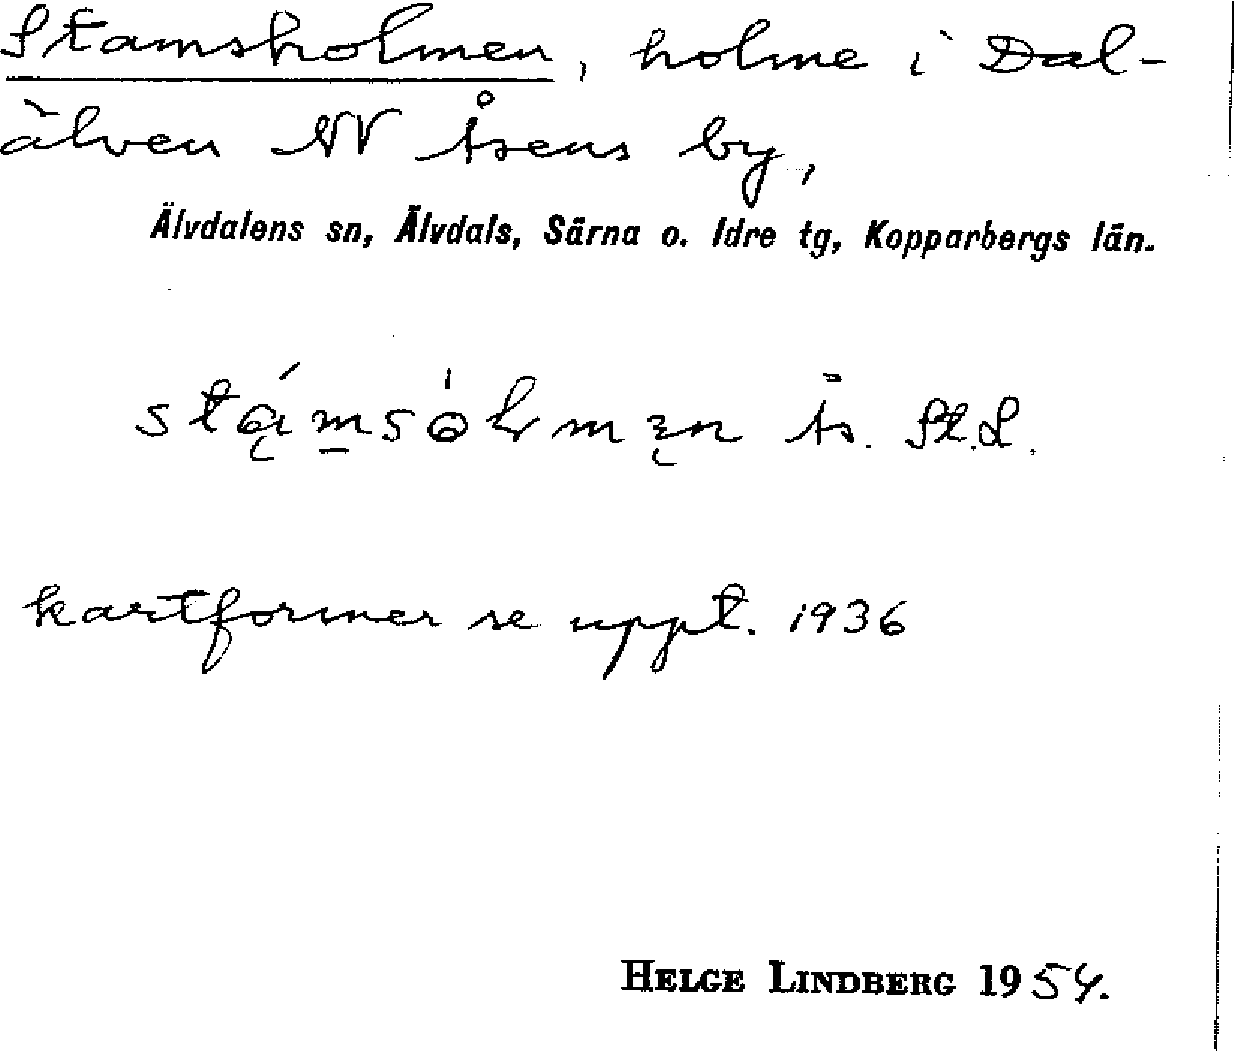 Stamsholmen, holme i Dal-
älven NV Åsens by,
Älvdalens sn, Älvdals, Särna o. Idre tg, Kopparbergs län.
Ås. St.L.
kartformer se uppt. 1936
HELGE LINDBERG 1954.